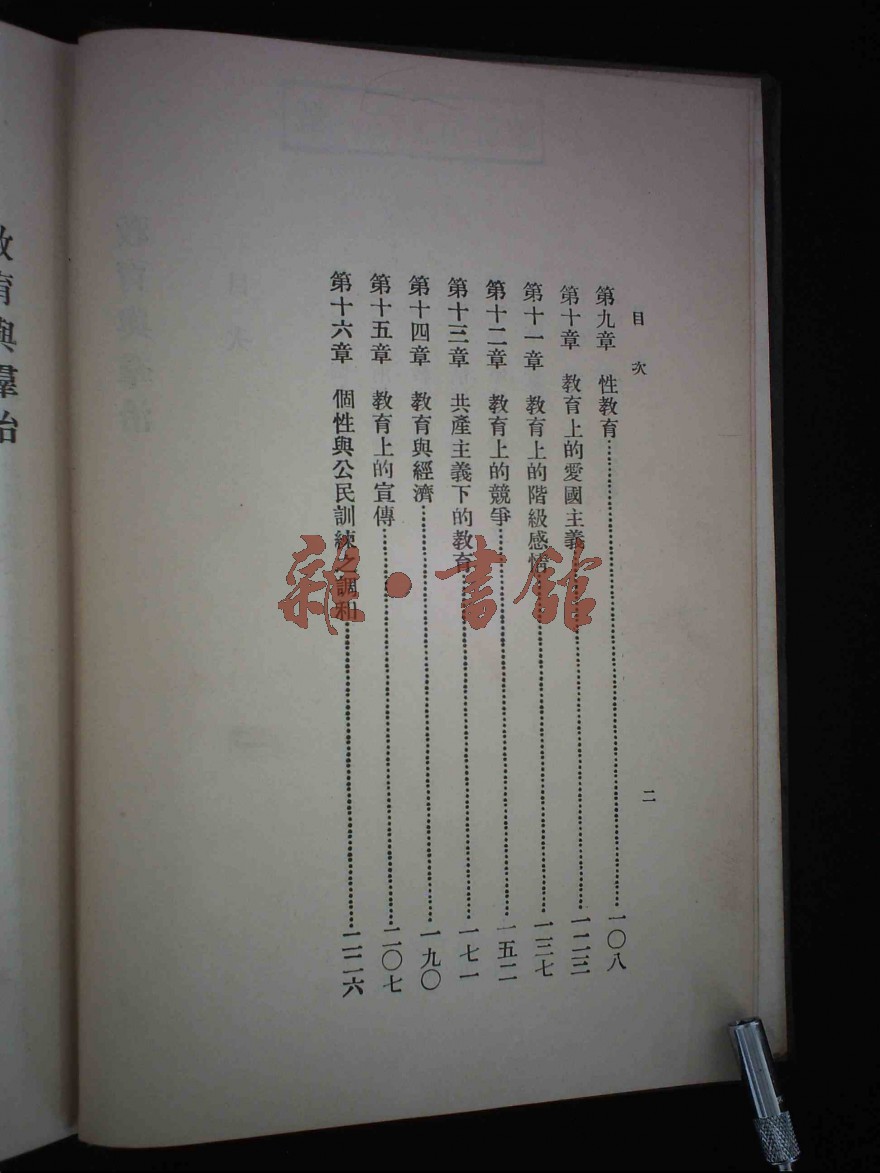 目次
二
第九章 性教育……一〇八
第十章 教育上的愛國主義……一二三
第十一章 教育上的階級感情……一三七
第十二章 教育上的競爭……一五二
第十三章 共產主義下的教育……一七一
第十四章 教育與經濟……一九〇
第十五章 教育上的宣傳……二〇七
第十六章 個性與公民訓練之調和……二二六
教育與羣治
雜·書館